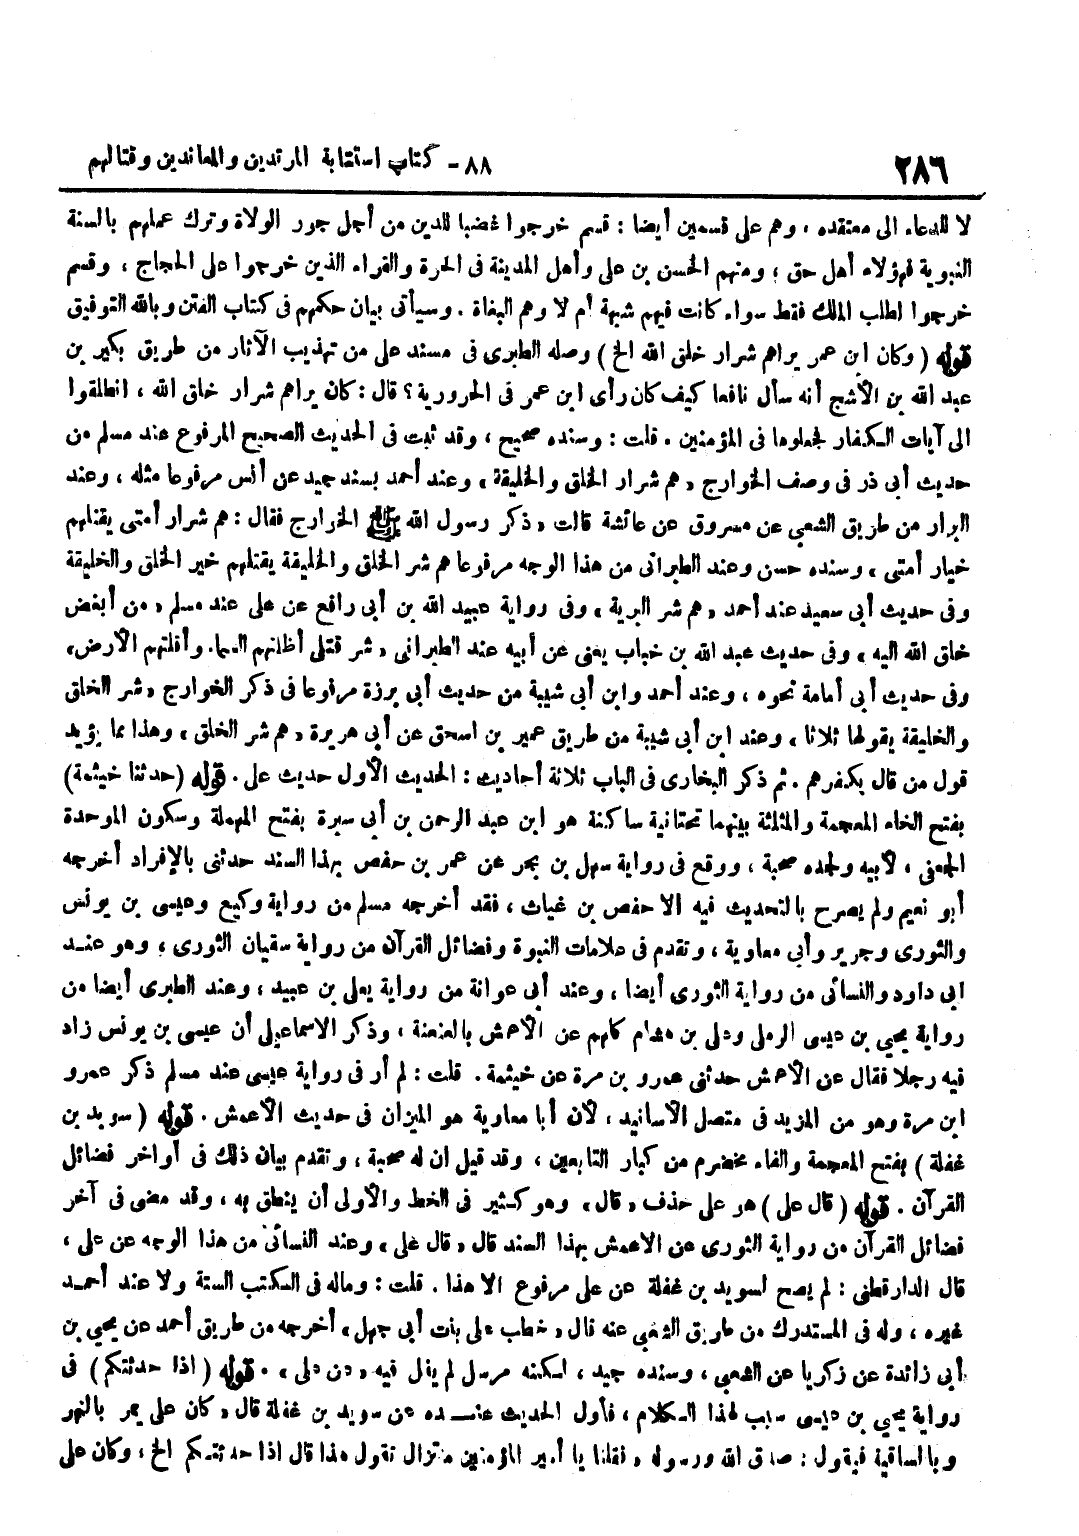 ٢٨٦
٨٨ - كتاب استتابة المرتدين والمعاندين وقتالهم
لا للدعاء الى معتقده ، وهم على قسمين أيضا : قسم خرجوا غضبا للدين من أجل جور الولاة وترك عملهم بالسنة
النبوية فهؤلاء أهل حق ؛ ومنهم الحسن بن على وأهل المدينة فى الحرة والقراء الذين خرجوا على الحجاج ، وقسم
خرجوا لطلب الملك فقط سواء كانت فيهم شبهة أم لا وهم البغاة . وسيأتى بيان حكمهم فى كتاب الفتن وبالله التوفيق
قوله ( وكان ابن عمر يراهم شرار خلق الله الخ ) وصله الطبرى فى مسند على من تهذيب الآثار من طريق بكير بن
عبد الله بن الأشج أنه سأل نافعا كيف كان رأى ابن عمر فى الحرورية ؟ قال : كان يراهم شرار خلق الله ، انطلقوا
الى آيات الكفار فجعلوها فى المؤمنين . قلت : وسنده صحيح ، وقد ثبت فى الحديث الصحيح المرفوع عند مسلم من
حديث أبى ذر فى وصف الخوارج « هم شرار الخلق والخليقة » وعند أحمد بسند جيد عن أنس مرفوعا مثله ، وعند
البزار من طريق الشعبى عن مسروق عن عائشة قالت « ذكر رسول الله ﷺ الخوارج فقال : هم شرار أمتى يقتلهم
خيار أمتى » وسنده حسن وعند الطبرانى من هذا الوجه مرفوعا هم شر الخلق والخليقة يقتلهم خير الخلق والخليقة
وفى حديث أبى سعيد عند أحمد « هم شر البرية » وفى رواية عبيد الله بن أبى رافع عن على عند مسلم « من أبغض
خلق الله اليه » وفى حديث عبد الله بن خباب يعنى عن أبيه عند الطبرانى « شر قتلى أظلتهم السماء وأقلتهم الأرض »
وفى حديث أبى أمامة نحوه ، وعند أحمد وابن أبى شيبة من حديث أبى برزة مرفوعا فى ذكر الخوارج « شر الخلق
والخليقة يقولها ثلاثا » وعند ابن أبى شيبة من طريق عمير بن اسحق عن أبى هريرة « هم شر الخلق » وهذا مما يؤيد
قول من قال بكفرهم . ثم ذكر البخارى فى الباب ثلاثة أحاديث : الحديث الأول حديث على . قوله ( حدثنا خيثمة )
بفتح الخاء المعجمة والمثلثة بينهما تحتانية ساكنة هو ابن عبد الرحمن بن أبى سبرة بفتح المهملة وسكون الموحدة
الجعفى ، لأبيه ولجده صحبة ، ووقع فى رواية سهل بن بحر عن عمر بن حفص بهذا السند حدثنى بالإفراد أخرجه
أبو نعيم ولم يصرح بالتحديث فيه الا حفص بن غياث ، فقد أخرجه مسلم من رواية وكيع وعيسى بن يونس
والثورى وجرير وأبى معاوية ، وتقدم فى علامات النبوة وفضائل القرآن من رواية سفيان الثورى ، وهو عند
ابى داود والنسائى من رواية الثورى أيضا ، وعند أبى عوانة من رواية يعلى بن عبيد ، وعند الطبرى أيضا من
رواية يحيى بن عيسى الرملى وعلى بن هشام كلهم عن الأعمش بالعنعنة ، وذكر الاسماعيلى أن عيسى بن يونس زاد
فيه رجلا فقال عن الأعمش حدثنى عمرو بن مرة عن خيثمة . قلت : لم أر فى رواية عيسى عند مسلم ذكر عمرو
ابن مرة وهو من المزيد فى متصل الأسانيد ، لأن أبا معاوية هو الميزان فى حديث الأعمش . قوله ( سويد بن
غفلة ) بفتح المعجمة والفاء مخضرم من كبار التابعين ، وقد قيل ان له صحبة ، وتقدم بيان ذلك فى أواخر فضائل
القرآن . قوله ( قال على ) هو على حذف « قال » وهو كثير فى الخط والأولى أن ينطق به ، وقد مضى فى آخر
فضائل القرآن من رواية الثورى عن الاعمش بهذا السند قال « قال على » وعند النسائى من هذا الوجه عن على ،
قال الدارقطنى : لم يصح لسويد بن غفلة عن على مرفوع الا هذا . قلت : وماله فى الكتب الستة ولا عند أحمد
غيره ، وله فى المستدرك من طريق الشعبى عنه قال « خطب على بنت أبى جهل » أخرجه من طريق أحمد عن يحيى بن
أبى زائدة عن زكريا عن الشعبى ، وسنده جيد ، لكنه مرسل لم يقل فيه « عن على » . قوله ( اذا حدثتكم ) فى
رواية يحيى بن عيسى سبب لهذا الكلام ، فأول الحديث عنده عن سويد بن غفلة قال « كان على يمر بالنهر
وبالساقية فيقول : صدق الله ورسوله ، فقلنا يا أمير المؤمنين ماتزال تقول هذا قال اذا حدثتكم الخ ، وكان على